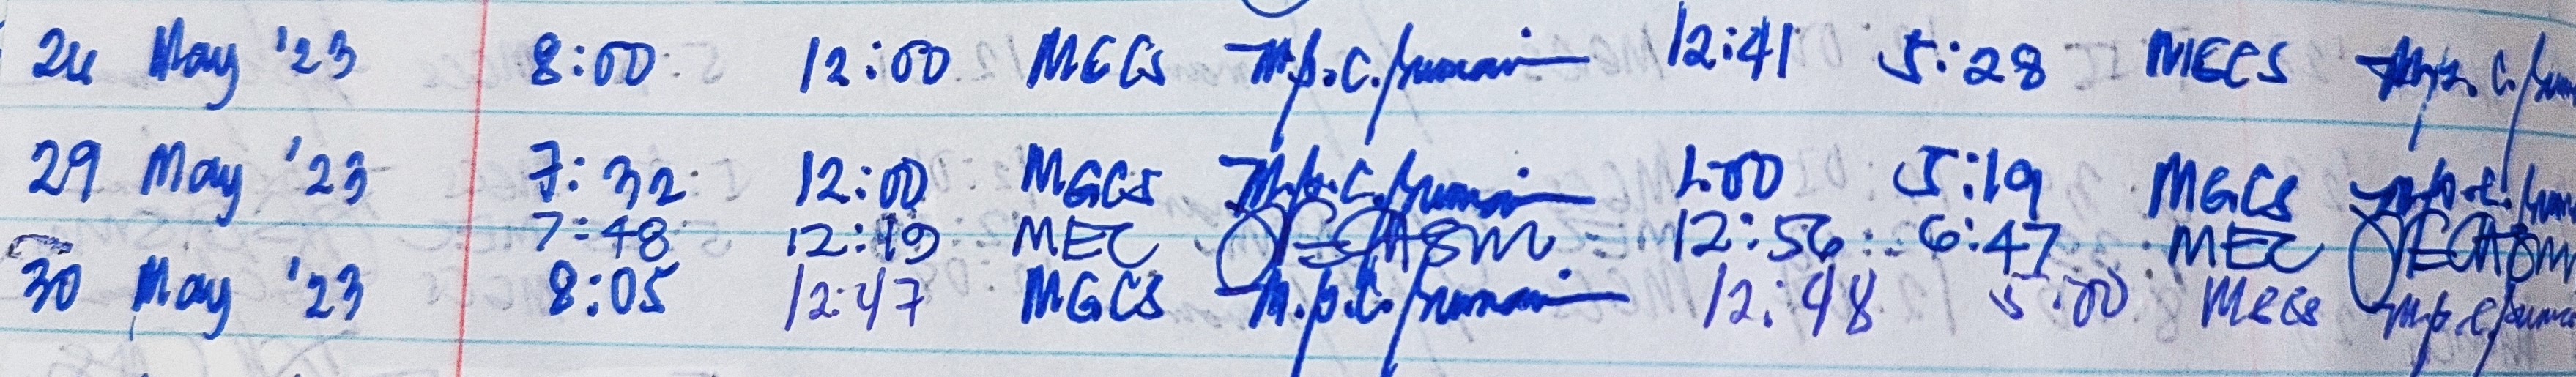 24 May '23 8:00 12:00 MGCS 12:41 5:28 MGCS
29 May '23 7:32 12:00 MGCS 1:00 5:19 MGCS
7:48 12:19 MEC 12:56 6:47 MEC
30 May '23 8:05 12:47 MGCS 12:48 5:00 MGCS